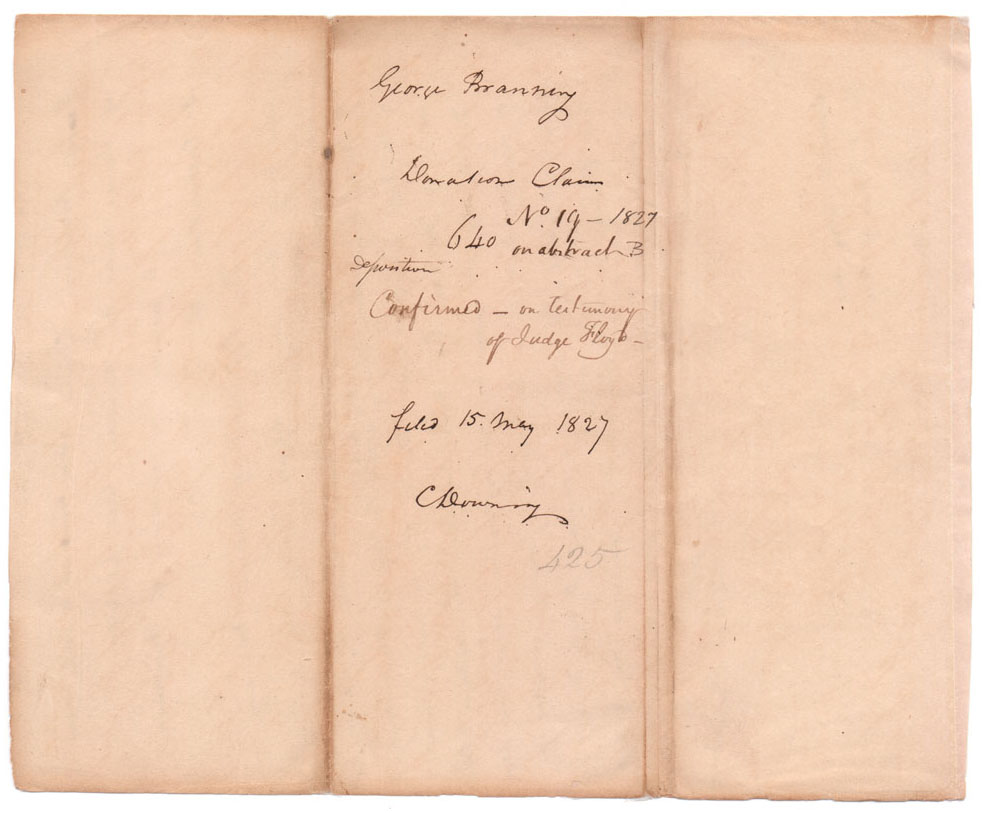 George Branning
Donation Claim
No. 19 - 1827
640 on abstract B
Deposition
Confirmed - on testimony
of Judge Floyd -
filed 15. May 1827
C Downing
425